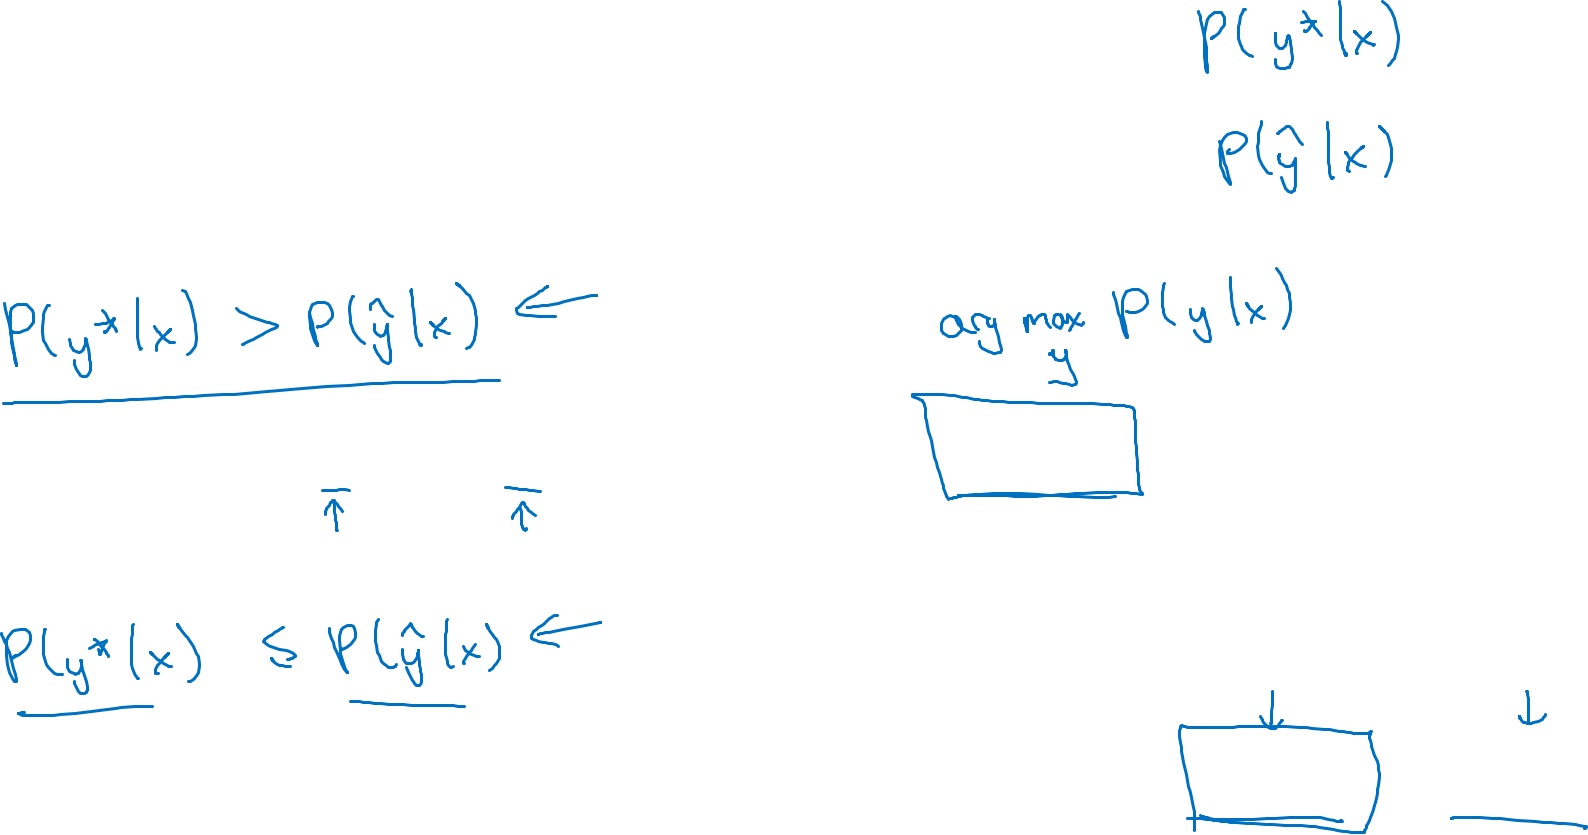 P(y*|x)
P(ŷ|x)
P(y*|x) > P(ŷ|x) ←
arg max P(y|x)
y
P(y*|x) ≤ P(ŷ|x) ←